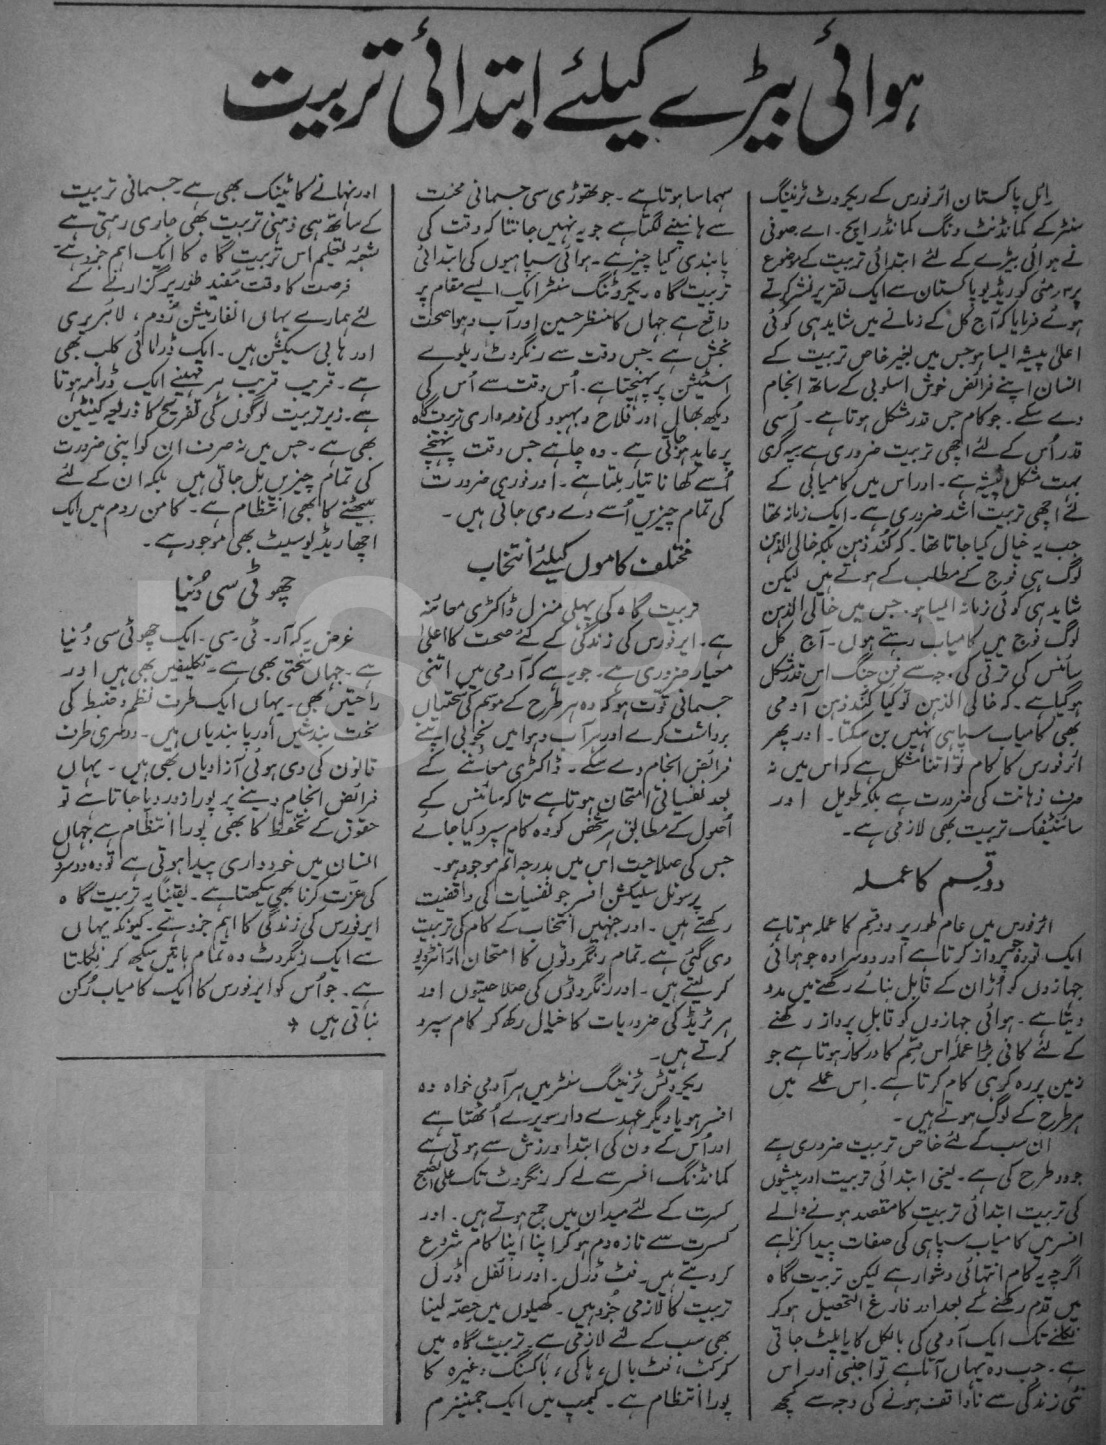 ہوائی بیڑے کیلئے ابتدائی تربیت
رائل پاکستان ائرفورس کے ریکروٹ ٹریننگ
سنٹر کے کمانڈنٹ ونگ کمانڈر ایچ۔ اے۔ صوفی
نے ہوائی بیڑے کے لئے ابتدائی تربیت کے موضوع
پر ۳ مئی کو ریڈیو پاکستان سے ایک تقریر نشر کرتے
ہوئے فرمایا کہ آج کل کے زمانے میں شاید ہی کوئی
اعلیٰ پیشہ ایسا ہو جس میں بغیر خاص تربیت کے
انسان اپنے فرائض خوش اسلوبی کے ساتھ انجام
دے سکے۔ جو کام جس قدر مشکل ہوتا ہے۔ اُسی
قدر اُس کے لئے اچھی تربیت ضروری ہے سپہ گری
بہت مشکل پیشہ ہے۔ اور اس میں کامیابی کے
لئے اچھی تربیت اشد ضروری ہے۔ ایک زمانہ تھا
جب یہ خیال کیا جاتا تھا۔ کہ کُند ذہن بلکہ خالی الذہن
لوگ ہی فوج کے مطلب کے ہوتے ہیں لیکن
شاید ہی کوئی زمانہ ایسا ہو۔ جس میں خالی الذہن
لوگ فوج میں کامیاب رہتے ہوں۔ آج کل
سائنس کی ترقی کی وجہ سے فن جنگ اس قدر مشکل
ہو گیا ہے۔ کہ خالی الذہن تو کیا کُند ذہن آدمی
بھی کامیاب سپاہی نہیں بن سکتا۔ اور پھر
ائرفورس کا کام تو اتنا مشکل ہے کہ اس میں نہ
صرف ذہانت کی ضرورت ہے بلکہ طویل اور
سائنٹیفک تربیت بھی لازمی ہے۔
دو قسم کا عملہ
ائرفورس میں عام طور پر دو قسم کا عملہ ہوتا ہے
ایک تو وہ جو پرواز کرتا ہے اور دوسرا وہ جو ہوائی
جہازوں کو اُڑان کے قابل بنائے رکھنے میں مدد
دیتا ہے۔ ہوائی جہازوں کو قابل پرواز رکھنے
کے لئے کافی بڑا عملہ اس قسم کا درکار ہوتا ہے جو
زمین پر رہ کر ہی کام کرتا ہے۔ اس عملے میں
ہر طرح کے لوگ ہوتے ہیں۔
ان سب کے لئے خاص تربیت ضروری ہے
جو دو طرح کی ہے۔ یعنی ابتدائی تربیت اور پیشوں
کی تربیت ابتدائی تربیت کا مقصد ہونے والے
افسر میں کامیاب سپاہی کی صفات پیدا کرنا ہے
اگرچہ یہ کام انتہائی دشوار ہے لیکن تربیت گاہ
میں قدم رکھنے کے بعد اور فارغ التحصیل ہو کر
نکلنے تک ایک آدمی کی بالکل کایا پلٹ جاتی
ہے۔ جب وہ یہاں آتا ہے تو اجنبی اور اس
نئی زندگی سے ناواقف ہونے کی وجہ سے کچھ
سہما سا ہوتا ہے۔ جو تھوڑی سی جسمانی محنت
سے ہانپنے لگتا ہے جو یہ نہیں جانتا کہ وقت کی
پابندی کیا چیز ہے۔ ہوائی سپاہیوں کی ابتدائی
تربیت گاہ ریکروٹنگ سنٹر ایک ایسے مقام پر
واقع ہے جہاں کا منظر حسین اور آب و ہوا صحت
بخش ہے۔ جس وقت سے رنگروٹ ریلوے
اسٹیشن پر پہنچتا ہے۔ اُس وقت سے اُس کی
دیکھ بھال اور فلاح و بہبود کی ذمہ داری تربیت گاہ
پر عاید ہو جاتی ہے۔ وہ چاہے جس وقت پہنچے
اُسے کھانا تیار ملتا ہے۔ اور فوری ضرورت
کی تمام چیزیں اُسے دے دی جاتی ہیں۔
مختلف کاموں کیلئے انتخاب
تربیت گاہ کی پہلی منزل ڈاکٹری معائنہ
ہے۔ ایرفورس کی زندگی کے لئے صحت کا اعلیٰ
معیار ضروری ہے۔ جو یہ ہے کہ آدمی میں اتنی
جسمانی قوت ہو کہ وہ ہر طرح کے موسم کی سختیاں
برداشت کرے اور ہر آب و ہوا میں بخوبی اپنے
فرائض انجام دے سکے۔ ڈاکٹری معائنے کے
بعد نفسیاتی امتحان ہوتا ہے تاکہ سائنس کے
اُصول کے مطابق ہر شخص کو وہ کام سپرد کیا جائے
جس کی صلاحیت اس میں بدرجہ اتم موجود ہو۔
پرسونل سلیکشن افسر جو نفسیات کی واقفیت
رکھتے ہیں۔ اور جنہیں انتخاب کے کام کی تربیت
دی گئی ہے۔ تمام رنگروٹوں کا امتحان اور انٹرویو
کر لیتے ہیں۔ اور رنگروٹوں کی صلاحیتوں اور
ہر ٹریڈ کی ضروریات کا خیال رکھ کر کام سپرد
کرتے ہیں۔
ریکروٹس ٹریننگ سنٹر میں ہر آدمی خواہ وہ
افسر ہو یا دیگر عہدے دار سویرے اُٹھتا ہے
اور اُس کے دن کی ابتدا ورزش سے ہوتی ہے
کمانڈنگ افسر سے لے کر رنگروٹ تک علی الصبح
کسرت کے لئے میدان میں جمع ہوتے ہیں۔ اور
کسرت سے تازہ دم ہو کر اپنا اپنا کام شروع
کر دیتے ہیں۔ فٹ ڈرل۔ اور رائفل ڈرل
تربیت کا لازمی جُزو ہیں۔ کھیلوں میں حصہ لینا
بھی سب کے لئے لازمی ہے۔ تربیت گاہ میں
کرکٹ، فٹ بال، ہاکی، باکسنگ، وغیرہ کا
پورا انتظام ہے۔ کیمپ میں ایک جمینیزیم
اور نہانے کا ٹینک بھی ہے۔ جسمانی تربیت
کے ساتھ ہی ذہنی تربیت بھی جاری رہتی ہے
شعبۂ تعلیم اس تربیت گاہ کا ایک اہم جزو ہے۔
فرصت کا وقت مفید طور پر گزارنے کے
لئے ہمارے یہاں انفارمیشن رُوم، لائبریری
اور ہابی سیکشن ہیں۔ ایک ڈرامائی کلب بھی
ہے۔ قریب قریب ہر مہینے ایک ڈرامہ ہوتا
ہے۔ زیر تربیت لوگوں کی تفریح کا ذریعہ کینٹین
بھی ہے۔ جس میں نہ صرف ان کو اپنی ضرورت
کی تمام چیزیں مل جاتی ہیں بلکہ ان کے لئے
بیٹھنے کا بھی انتظام ہے۔ کامن روم میں ایک
اچھا ریڈیو سیٹ بھی موجود ہے۔
چھوٹی سی دُنیا
غرض یہ کہ آر۔ ٹی۔ سی۔ ایک چھوٹی سی دُنیا
ہے۔ جہاں سختی بھی ہے۔ تکلیفیں بھی ہیں اور
راحتیں بھی۔ یہاں ایک طرف نظم و ضبط کی
سخت بندشیں اور پابندیاں ہیں۔ دوسری طرف
قانون کی دی ہوئی آزادیاں بھی ہیں۔ یہاں
فرائض انجام دینے پر پورا زور دیا جاتا ہے تو
حقوق کے تحفظ کا بھی پورا انتظام ہے جہاں
انسان میں خودداری پیدا ہوتی ہے تو وہ دوسروں
کی عزت کرنا بھی سیکھتا ہے۔ یقیناً یہ تربیت گاہ
ایرفورس کی زندگی کا اہم جزو ہے۔ کیونکہ یہاں
سے ایک رنگروٹ وہ تمام باتیں سیکھ کر نکلتا
ہے۔ جو اُس کو ایرفورس کا ایک کامیاب رُکن
بناتی ہیں
ISPR